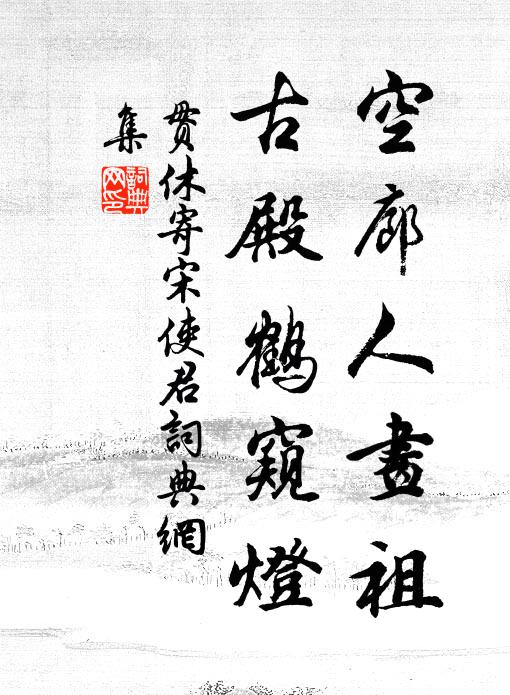 空廊人畫祖
古殿鶴窺燈
貫休寄宋使君詞典網
集
詞典
网印